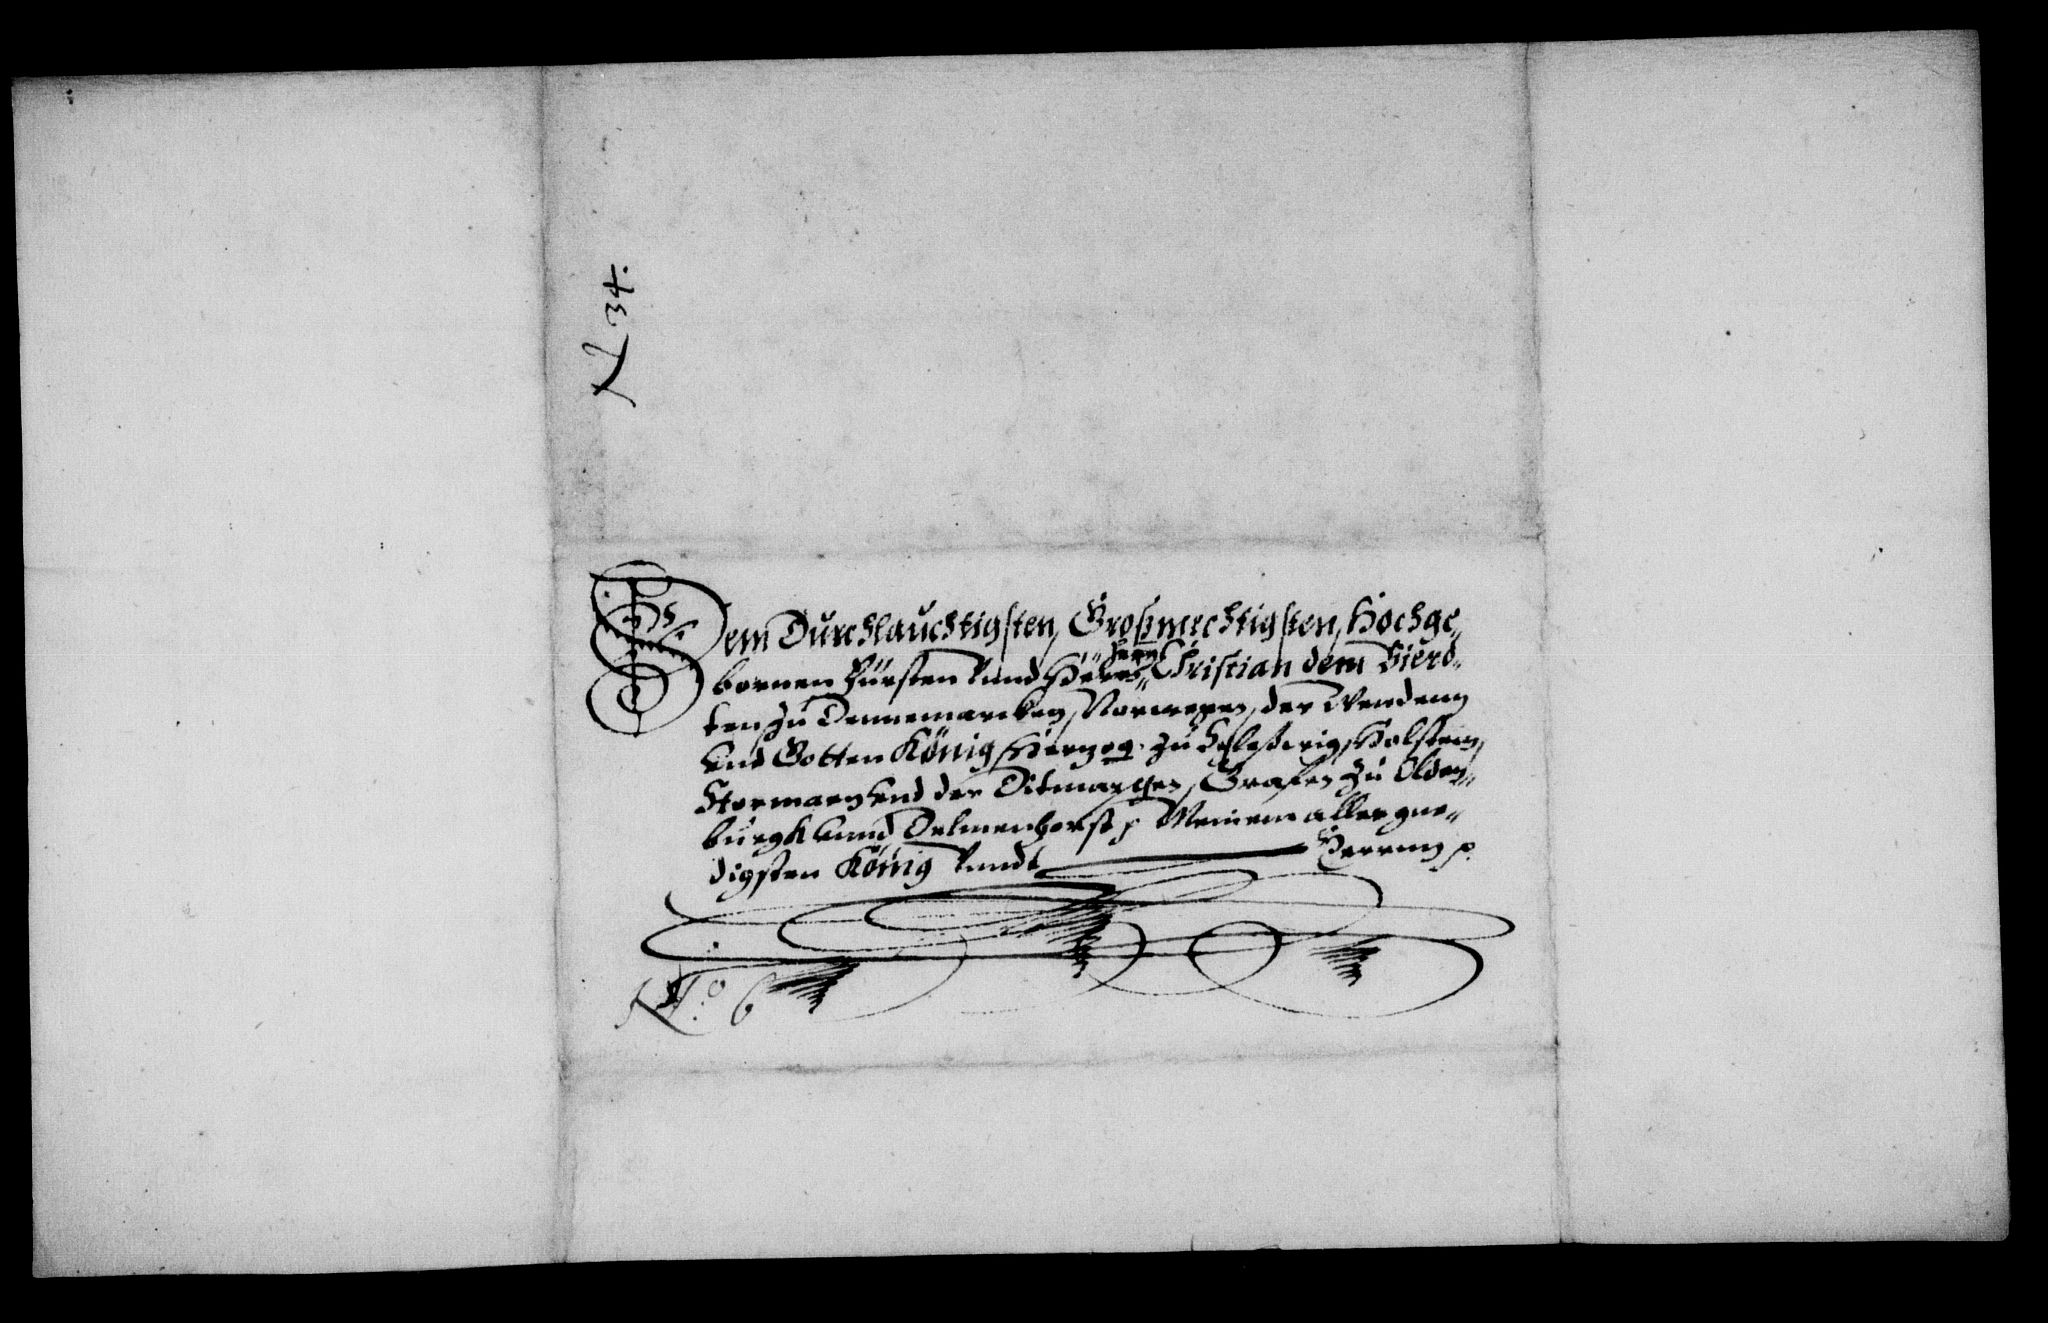 N 34.
Dem Durchlauchtigsten, Großmechtigsten, Hochge„
bornen Fürsten vnnd Herrn, Hern Christian dem Vierd„
ten zu Dennemarcken, Norwegen, der Wendenn
vnd Gotten König, Hertzog zu Schleßwig, Holstein,
Stormarn vnd der Ditmarschen, Grafen zu Olden„
burgk vnnd Delmenhorst p Meinem allergne„
digsten König vnndt Herrnn p.
No. 6